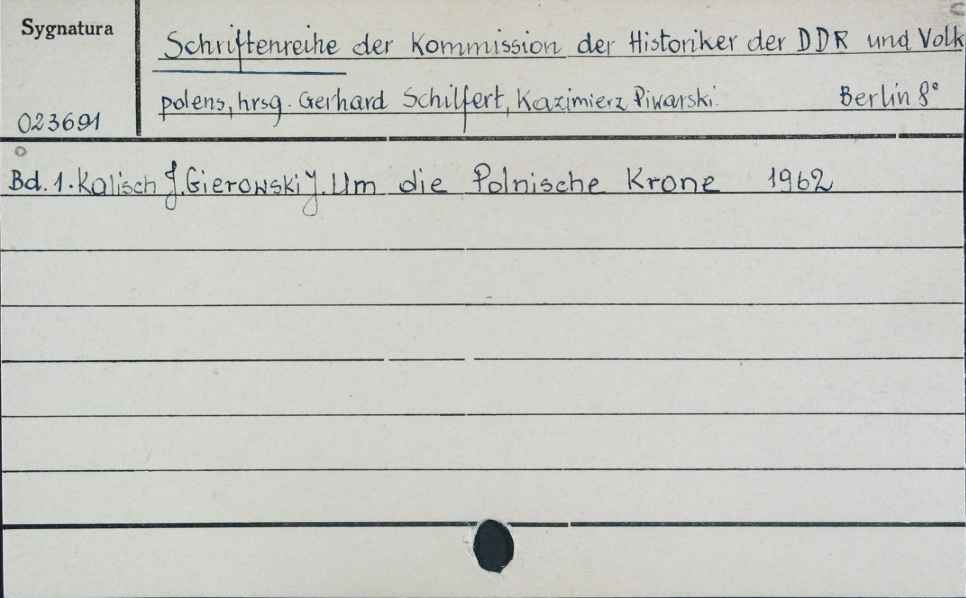 Sygnatura
Schriftenreihe der Kommission der Historiker der DDR und Volk
polens, hrsg. Gerhard Schilfert, Kazimierz Piwarski. Berlin 8°
023691
Bd. 1. Kalisch J. Gierowski J. Um die Polnische Krone 1962